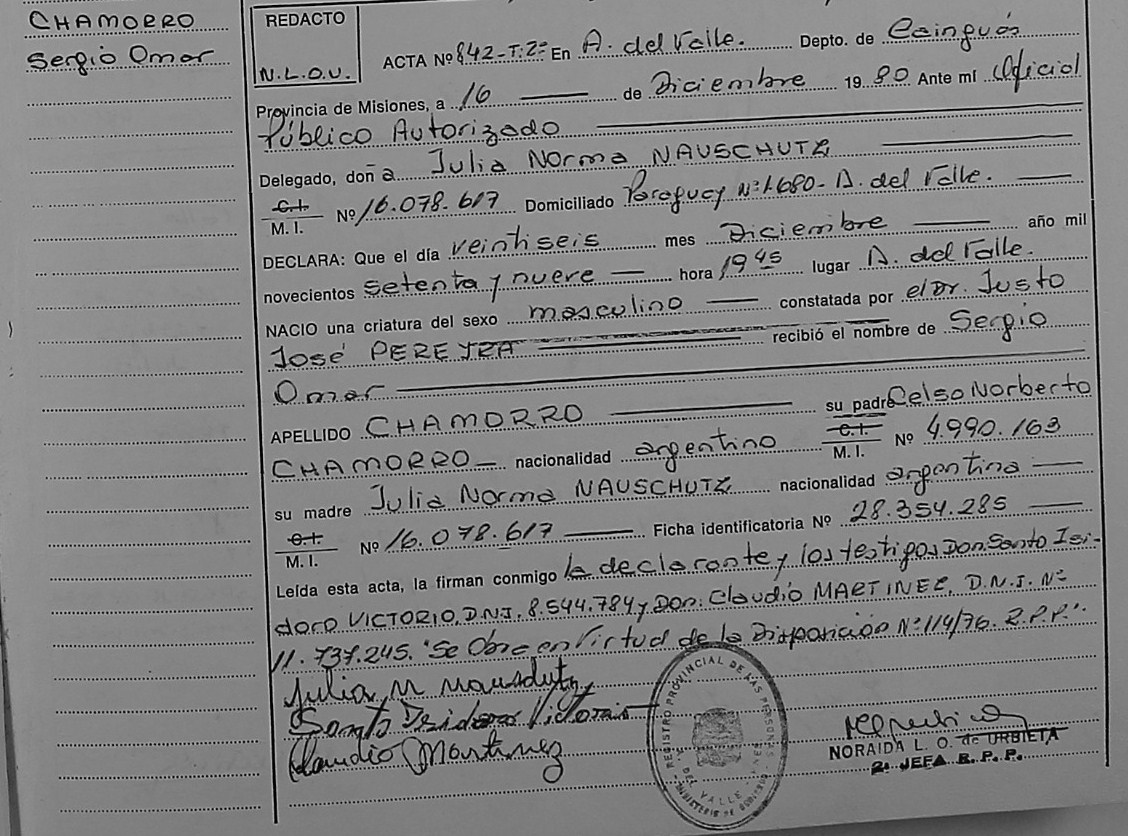 CHAMORRO
Sergio Omar
REDACTO
N.L.O.U.
ACTA Nº 842-T:2º En A. del Valle. Depto. de Cainguás
Provincia de Misiones, a 16 de Diciembre 19 80 Ante mí Oficial
Público Autorizado
Delegado, doña Julia Norma NAUSCHUTZ
C.I.
M. I. Nº 16.078.617 Domiciliado Paraguay Nº 1.680- A. del Valle.
DECLARA: Que el día veintiseis mes Diciembre año mil
novecientos setenta y nueve hora 19 45 lugar A. del Valle.
NACIO una criatura del sexo masculino constatada por el Dr. Justo
José PEREYRA recibió el nombre de Sergio
Omar
APELLIDO CHAMORRO su padre Celso Norberto
CHAMORRO nacionalidad argentino C.I. M. I. Nº 4.990.163
su madre Julia Norma NAUSCHUTZ nacionalidad argentina
C.I.
M. I. Nº 16.078.617 Ficha identificatoria Nº 28.354.285
Leída esta acta, la firman conmigo la declarante y los testigos Don: Santo Isi-
doro VICTORIO, D.N.I. 8.544.784 y Don: Claudio MARTINEZ, D.N.I. Nº
11.737.245. "Se Obra en Virtud de la Disposición Nº 114/76. R.P.P."
Julia N Nauschutz
Santo Isidoro Victorio
Claudio Martinez
REGISTRO PROVINCIAL DE LAS PERSONAS
DEL VALLE
MINISTERIO DE GOBIERNO
NORAIDA L. O. de URBIETA
2ª JEFA R. P. P.